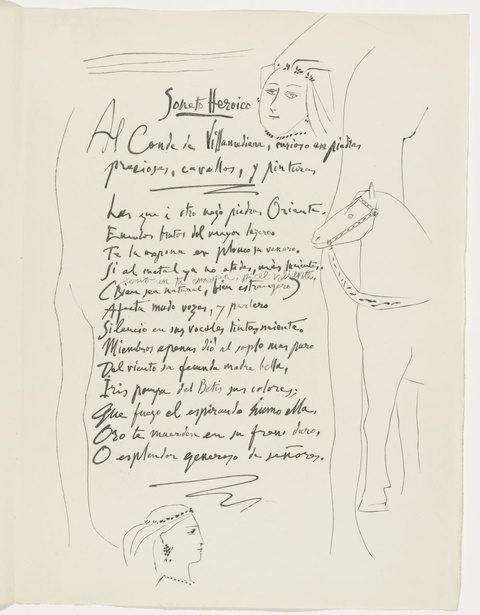 Soneto Heroico
Al Conde de Villamediana, curioso en piedras
preciosas, cavallos, y pinturas
Las que a otro negó piedras Oriente,
Emulos brutos del mayor luzero,
Te las expone en plomo su venero,
Si al metal ya no atadas, más lucientes.
Quanto en tu camarin pincel valiente,
(Bien sea natural, bien estrangero)
Afecta mudo vozes, y parlero
Silencio en sus vocales tintas miente.
Miembros apenas dió al soplo mas puro
Del viento su fecunda madre bella,
Iris pompa del Betis sus colores;
Que fuego el espirando humo ella,
Oro te muerden en su freno duro,
O esplendor generoso de señores.